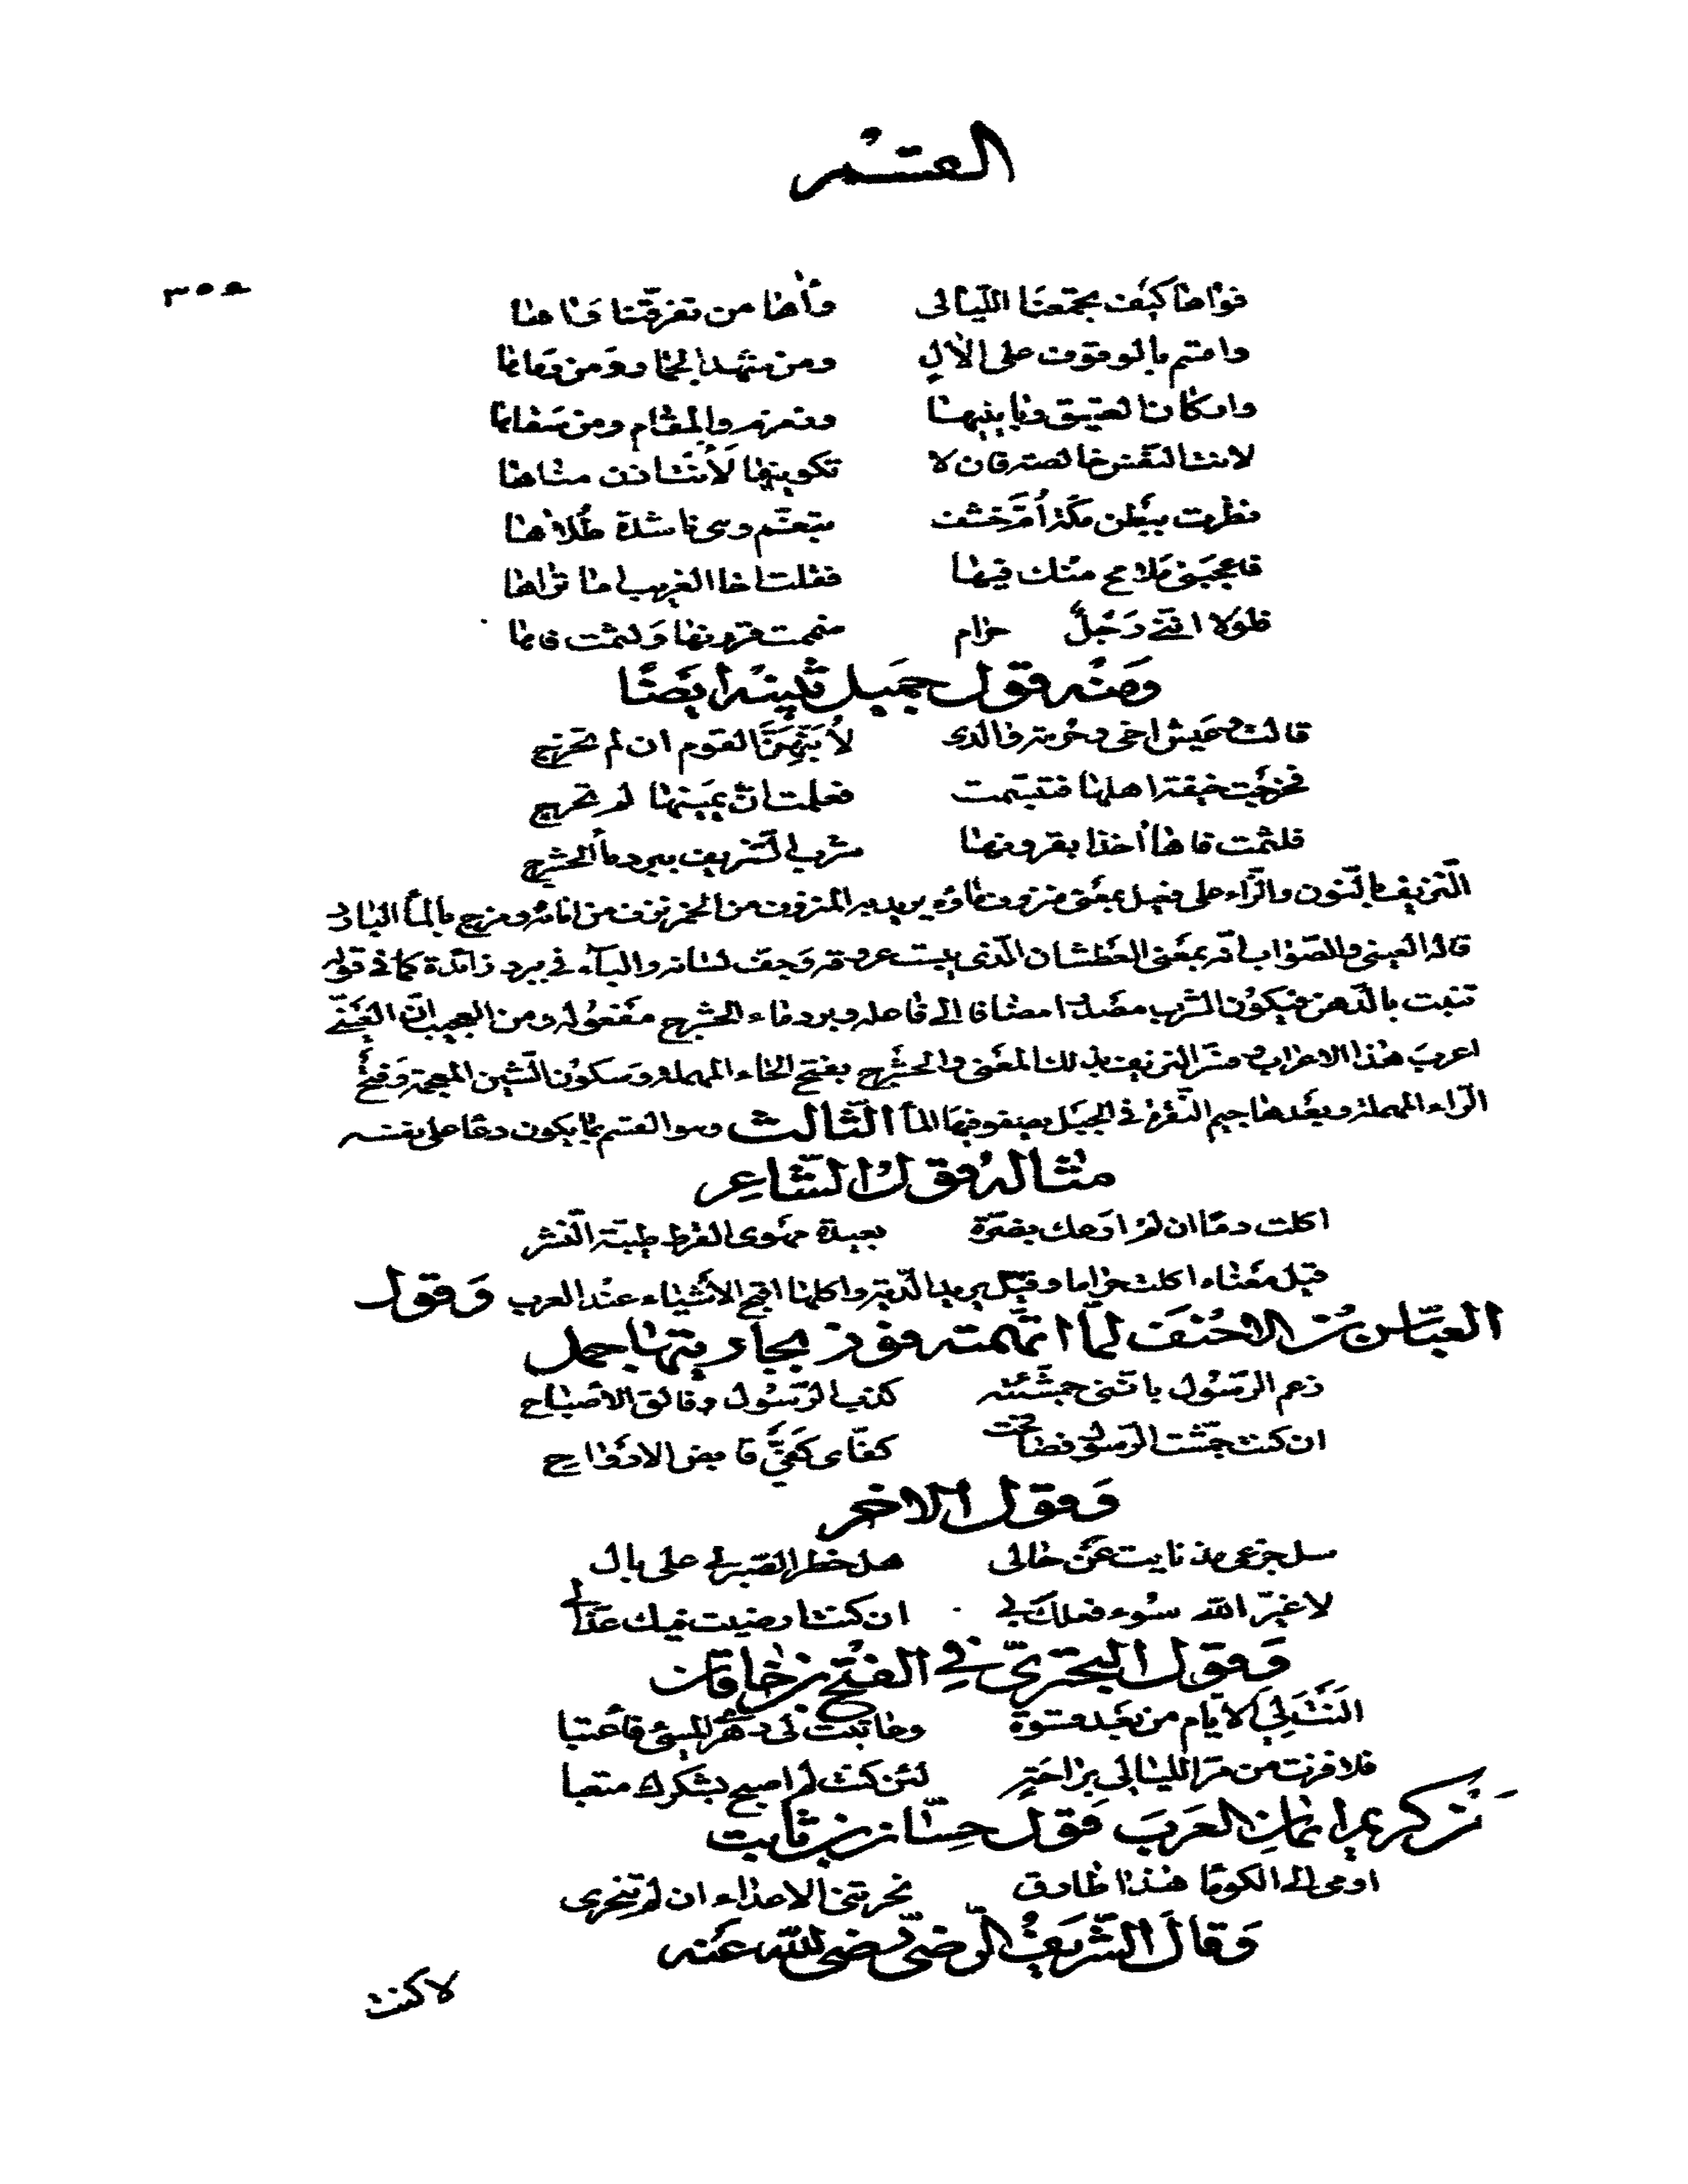 القسم
٣٥٥
فواها كيف تجمعنا الليالي وآها من تفرقنا وآها
واقسم بالوقوف على الال ومن شهد الجمار ومن رماها
واركان العتيق وبانيها وزمزم والمقام ومن سقاها
لانت النفس خالصة فان لا تكونيها لأنت اذن مناها
نظرت ببطن مكة أم خشف تبغم وهي ناشدة طلاها
فاعجبني ملامح منك فيها فقلت اخا الغريب اما تراها
فلولا انني رجل حرام ضممت قرونها ولثمت فاها
ومنه قول جميل بثينة أيضا
قالت وعيش اخي وحرمة والدي لأنبهن القوم ان لم تخرج
فخرجت خيفة اهلها فتبسمت فعلمت ان يمينها لم تحرج
فلثمت فاها أخذا بقرونها شرب النزيف ببرد ماء الحشرج
النزيف بالنون والزاء على فعيل بمعنى منزوف ماؤه يريد به المنزوف من الخمر نزف من انائه ومزج بالماء البارد
قاله العيني والصواب انه بمعنى العطشان الذي يبست عروقه وجف لسانه والبآء في برد زائدة كما في قوله
تنبت بالدهن فيكون الشرب مصدرا مضافا الى فاعله وبرد ماء الحشرج مفعوله ومن العجيب ان العيني
اعرب هذا الاعراب وفسر النزيف بذلك المعنى والحشرج بفتح الحاء المهملة وسكون الشين المعجمة وفتح
الراء المهملة وبعدها جيم النقرة في الجبل يصفو فيها الماء الثالث وهو القسم بما يكون دعا على نفسه
مثاله قول الشاعر
اكلت دما ان لم ارعك بضرة بعيدة مهوى القرط طيبة النشر
قيل معناه اكلت حراما وقيل يريد الدية واكلها اقبح الأشياء عند العرب وقول
العباس بن الاحنف لما اتهمته فوز بجاريتها جمل
زعم الرسول باننى جمشته كذب الرسول وفالق الأصباح
ان كنت جمشت الرسول فصافحت كفاى كفي قابض الارواح
وقول الاخر
سل جزعي مذ نايت عن حالى هل خطر الصبر لي على بال
لا غير الله سوء فعلك بي ان كنت ارضيت فيك عذالي
وقول البحتري في الفتح بن خاقان
النت لي الأيام من بعد قسوة وعاتبت لى دهري المسئ فأعتبا
فلا فزت من مر الليالى براحة لئن كنت لم اصبح بشكرك متعبا
ومن كريم ايمان العرب قول حسان بن ثابت
اومى الى الكوما هذا طارق نحرتني الاعداء ان لم تنحري
وقال الشريف الرضي رضي الله عنه
لا كنت